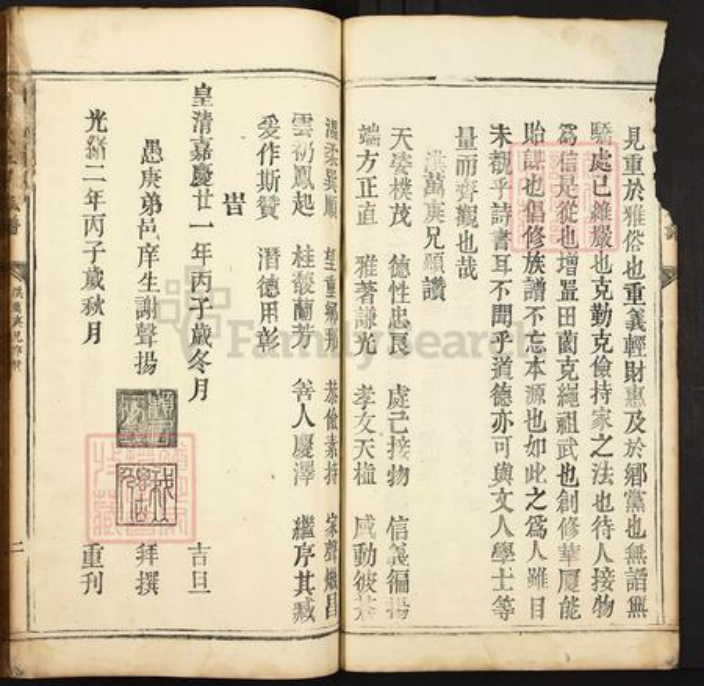 見重於雅俗也重義輕財惠及於鄉黨也無謟無
驕處己維嚴也克勤克儉持家之法也待人接物
爲信是從也增置田園克繩祖武也創修華厦能
貽謀也倡修族譜不忘本源也如此之爲人雖目
未觀乎詩書耳不聞乎道德亦可與文人學士等
量而齊觀也哉
萬庚兄頤讚
天姿樸茂 德性忠良 處己接物 信義徧揚
端方正直 雅著謙光 孝友天植 感動彼蒼
溫柔巽順 望重鄉邦 恭儉素持 家聲熾昌
雲礽鳳起 桂馥蘭芳 善人慶澤 繼序其臧
爰作斯贊 潛德用彰
旹
皇清嘉慶廿一年丙子歲冬月 吉旦
愚庚弟邑庠生謝聲揚 拜撰
光緒二年丙子歲秋月 重刊
二
FamilySearch